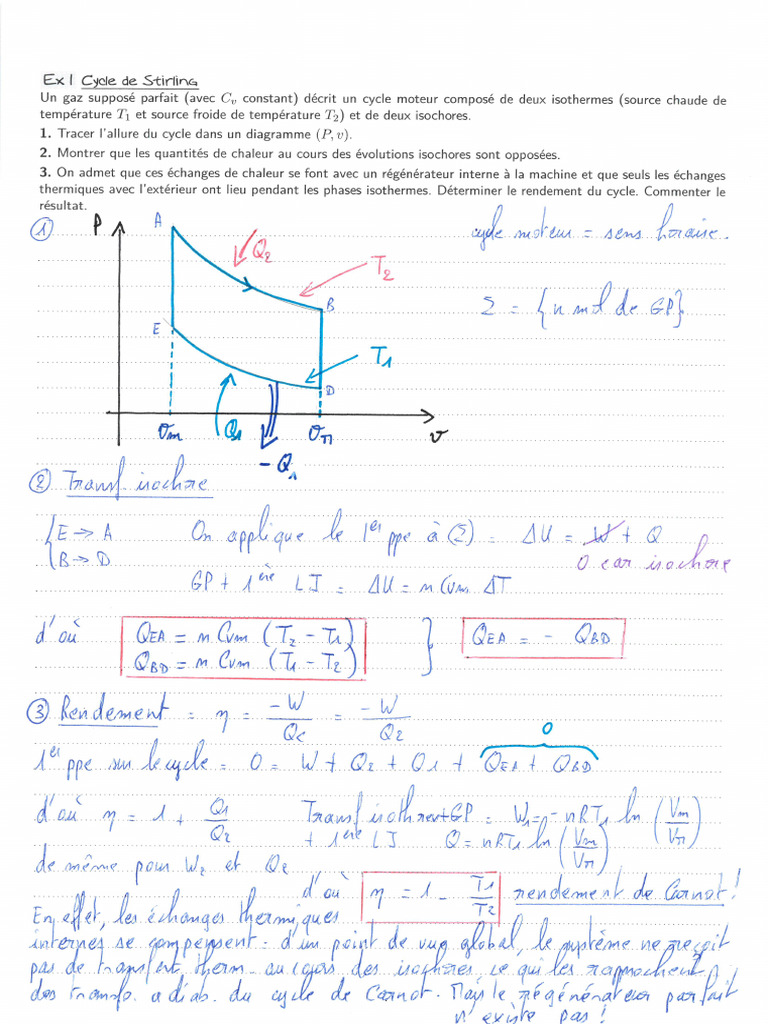 Ex 1 Cycle de Stirling
Un gaz supposé parfait (avec Cv constant) décrit un cycle moteur composé de deux isothermes (source chaude de
température T1 et source froide de température T2) et de deux isochores.
1. Tracer l'allure du cycle dans un diagramme (P, v).
2. Montrer que les quantités de chaleur au cours des évolutions isochores sont opposées.
3. On admet que ces échanges de chaleur se font avec un régénérateur interne à la machine et que seuls les échanges
thermiques avec l'extérieur ont lieu pendant les phases isothermes. Déterminer le rendement du cycle. Commenter le
résultat.
① P A Q2 T2 cycle moteur = sens horaire.
B Σ = {n mol de GP}
E T1
D
vm Q1 vM v
-Q1
② Transf isochore
{E → A On applique le 1er ppe à (Σ) = ΔU = W + Q
B → D 0 car isochore
GP + 1ère LJ = ΔU = n Cvm ΔT
d'où QEA = n Cvm (T2 - T1) } QEA = - QBD
QBD = n Cvm (T1 - T2)
③ Rendement = η = -W/Qc = -W/Q2
0
1er ppe sur le cycle = 0 = W + Q2 + Q1 + QEA + QBD
d'où η = 1 + Q1/Q2 Transf isotherm+GP = W1 = - nRT1 ln (Vm/VM)
+ 1ère LJ Q = nRT1 ln (Vm/VM)
de même pour W2 et Q2
d'où η = 1 - T1/T2 rendement de Carnot !
En effet, les échanges thermiques
internes se compensent : d'un point de vue global, le système ne reçoit
pas de transfert therm. au cours des isochores, ce qui les rapprochent
des transfo. adiab. du cycle de Carnot. Mais le régénérateur parfait
n'existe pas !